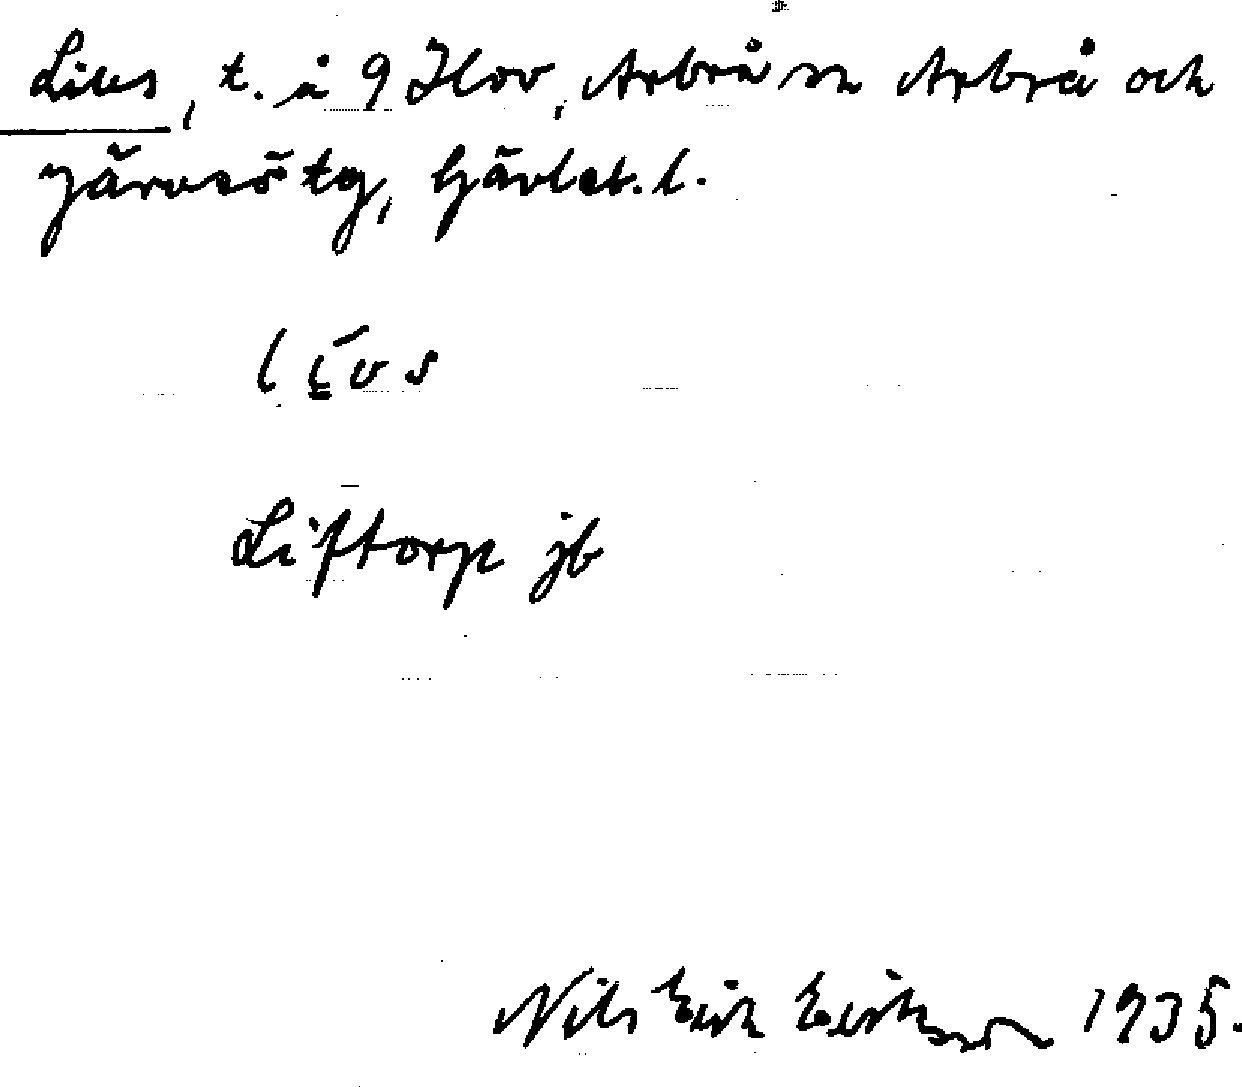 Livs, t. å 9 Hov, Arbrå sn Arbrå och
Järvsö tg, Gävleb. l.
līvs
Liftorp jb
Nils Erik Eriksson 1935.